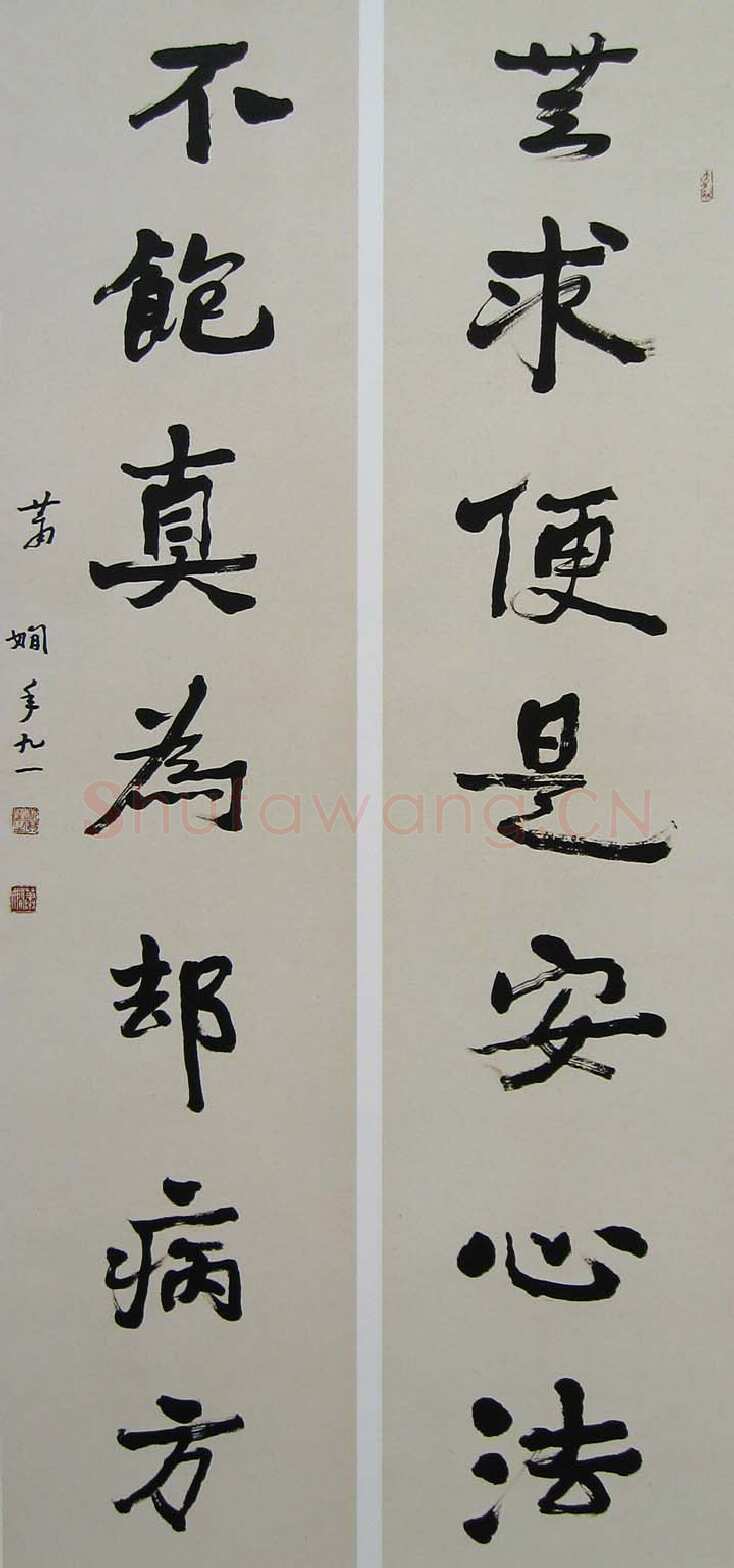 無求便是安心法
不飽真為却病方
蕭嫻年九一
Shufawang.CN